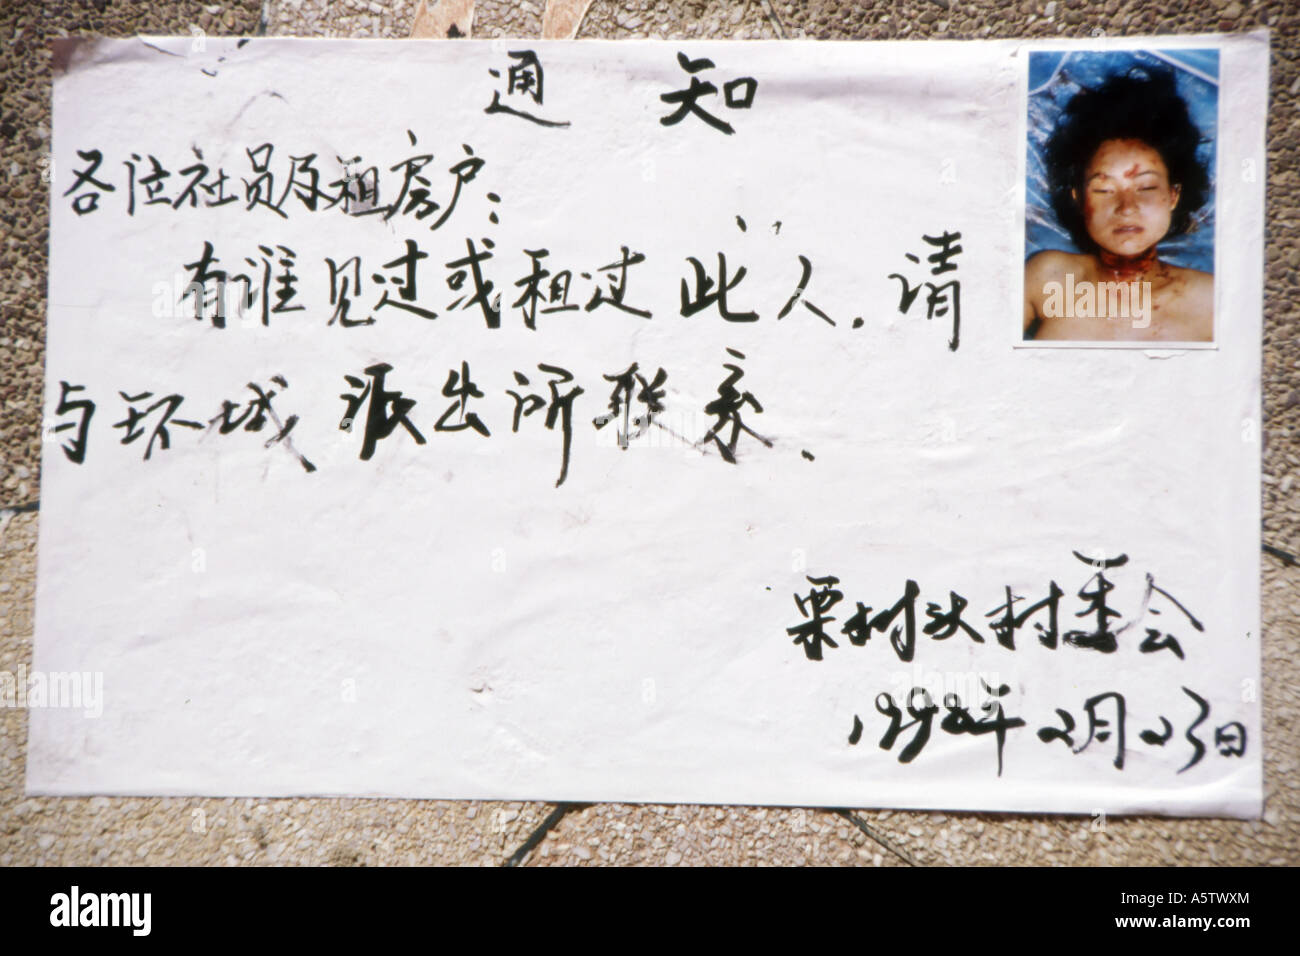 通 知
各位社员及租房户:
有谁见过或租过此人.请
与环城派出所联系.
栗树头村委会
1998年2月23日
alamy
a
alamy
Image ID: A5TWXM
www.alamy.com